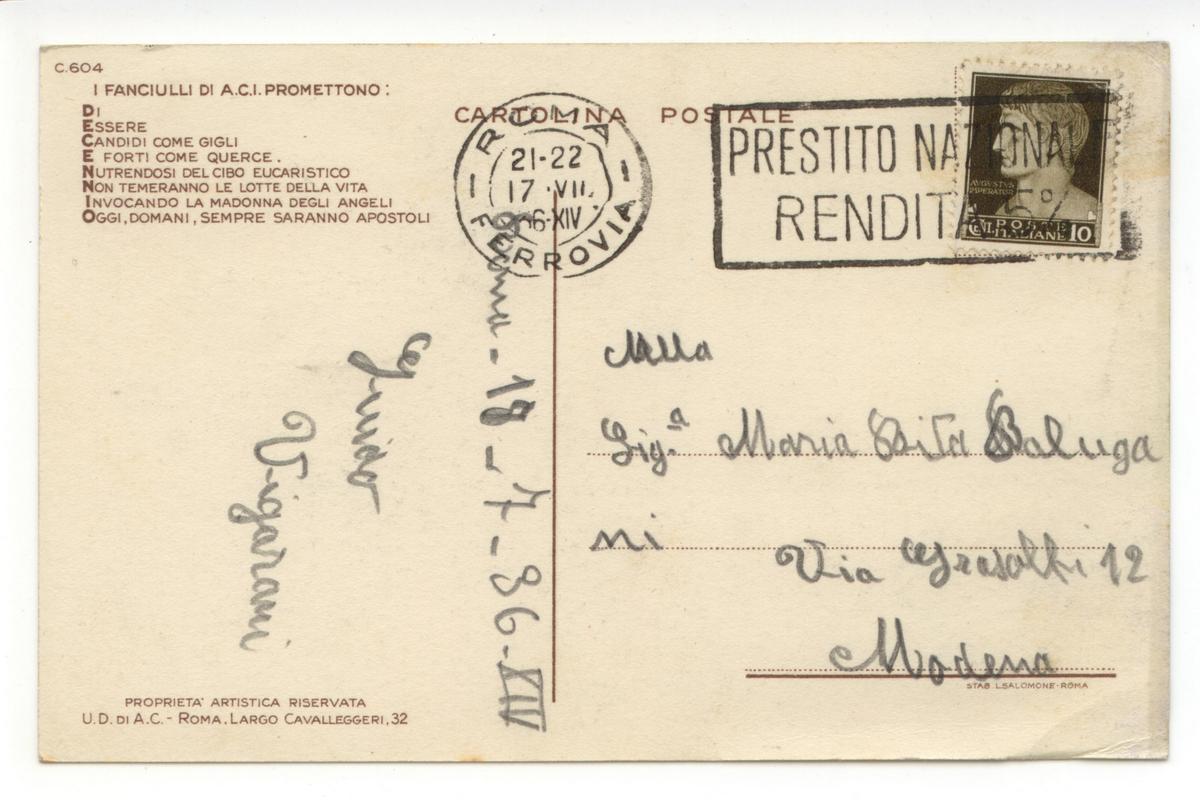 C.604
I FANCIULLI DI A.C.I. PROMETTONO:
DI
ESSERE
CANDIDI COME GIGLI
E FORTI COME QUERCE.
NUTRENDOSI DEL CIBO EUCARISTICO
NON TEMERANNO LE LOTTE DELLA VITA
INVOCANDO LA MADONNA DEGLI ANGELI
OGGI, DOMANI, SEMPRE SARANNO APOSTOLI
CARTOLINA POSTALE
ROMA
21-22
17 ·VII.
36-XIV
FERROVIA
PRESTITO NAZIONALE
RENDITA 5%
AUGUSTUS
IMPERATOR
CENT. POSTE ITALIANE 10
Alla
Sig.a Maria Rita Baluga
ni
Via 12
Modena
STAB. L.SALOMONE-ROMA
Roma - 17 - 7 - 36 - XIV
Guido
Vigarani
PROPRIETA' ARTISTICA RISERVATA
U.D. DI A.C. - ROMA, LARGO CAVALLEGGERI, 32